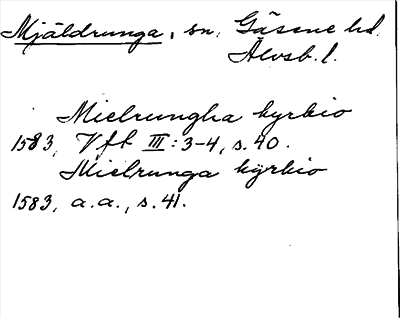 Mjäldrunga, sn, Gäsene hd.
Älvsb. l.
Mielrungha kyrkio
1583, Vft III: 3-4, s. 40.
Mielrunga kÿrkio
1583, a.a., s. 41.